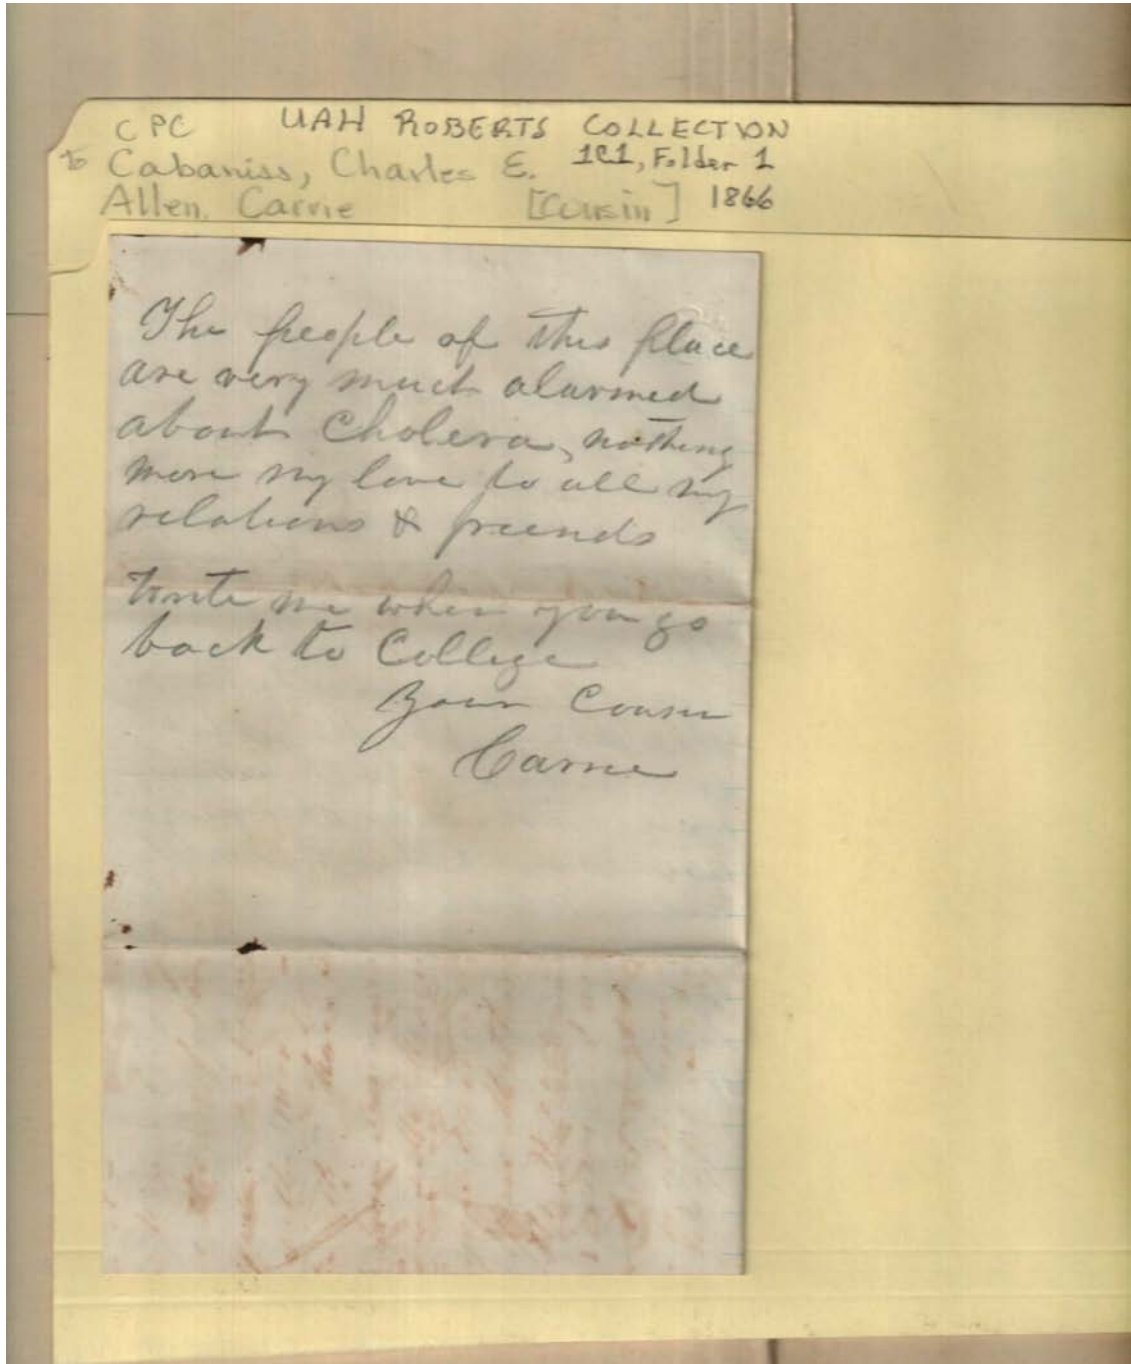 CPC UAH ROBERTS COLLECTION
to Cabaniss, Charles E. 1C1, Folder 1
Allen, Carrie [Cousin] 1866
The people of this place
are very much alarmed
about Cholera, nothing
more my love to all my
relations & friends
Write me when you go
back to College
Your Cousin
Carrie